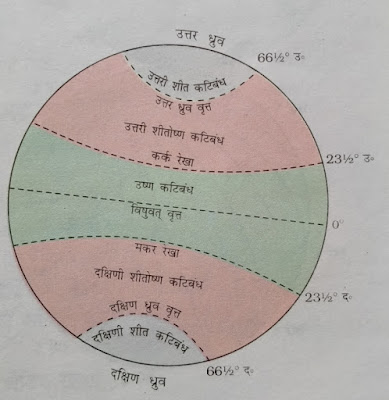 उत्तर ध्रुव
66½° उ॰
उत्तरी शीत कटिबंध
उत्तर ध्रुव वृत्त
उत्तरी शीतोष्ण कटिबंध
कर्क रेखा
23½° उ॰
उष्ण कटिबंध
विषुवत् वृत्त
0°
मकर रेखा
दक्षिणी शीतोष्ण कटिबंध
23½° द॰
दक्षिण ध्रुव वृत्त
दक्षिणी शीत कटिबंध
66½° द॰
दक्षिण ध्रुव